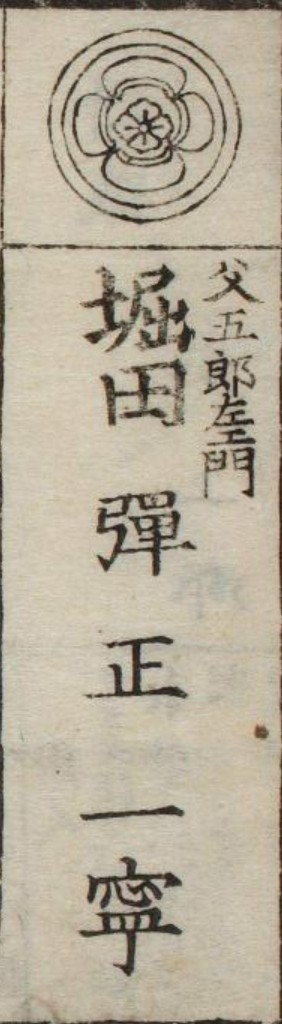 父五郎左門
堀田彈正一寧